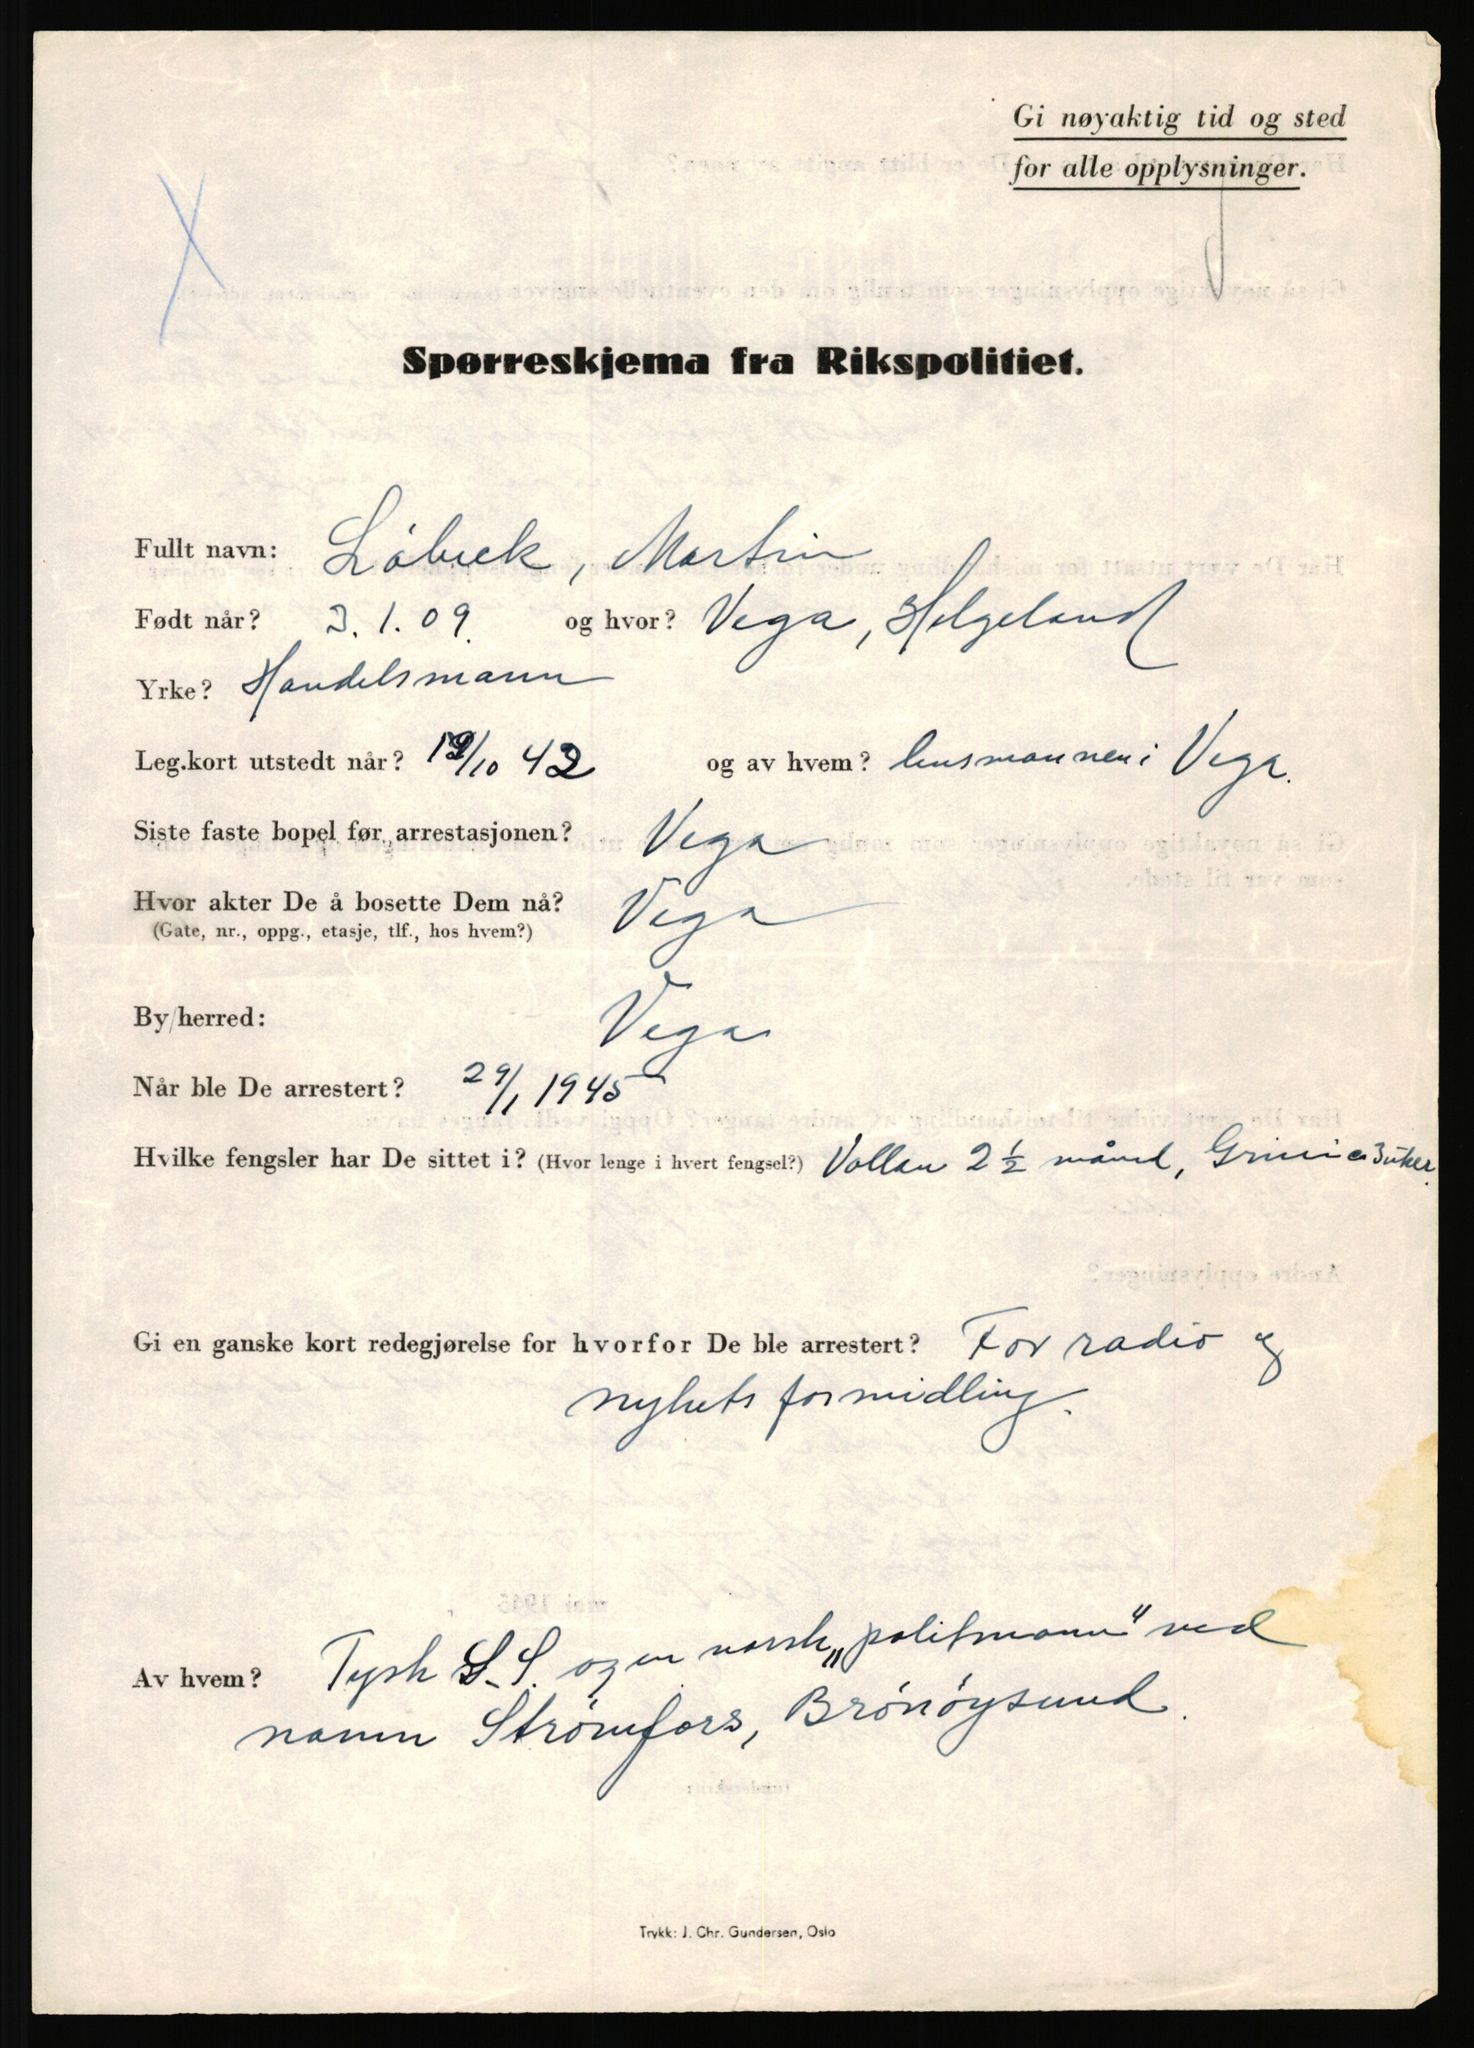 Gi nøyaktig tid og sted
for alle opplysninger.
Spørreskjema fra Rikspolitiet.
Fullt navn: Löbeck, Martin
Født når? 3.1.09. og hvor? Vega, Helgeland
Yrke? Handelsmann
Leg.kort utstedt når? 19/10 42 og av hvem? lensmannen i Vega.
Siste faste bopel før arrestasjonen? Vega
Hvor akter De å bosette Dem nå? Vega
(Gate, nr., oppg., etasje, tlf., hos hvem?)
By/herred: Vega
Når ble De arrestert? 29/1 1945
Hvilke fengsler har De sittet i? (Hvor lenge i hvert fengsel?) Vollan 2 ½ måned, Grini ca 3 uker.
Gi en ganske kort redegjørelse for hvorfor De ble arrestert? For radio og
nyhetsformidling.
Av hvem? Tysk S.S. og en norsk „politimann" ved
navn Strømfors, Brönöysund.
Trykk: J. Chr. Gundersen, Oslo